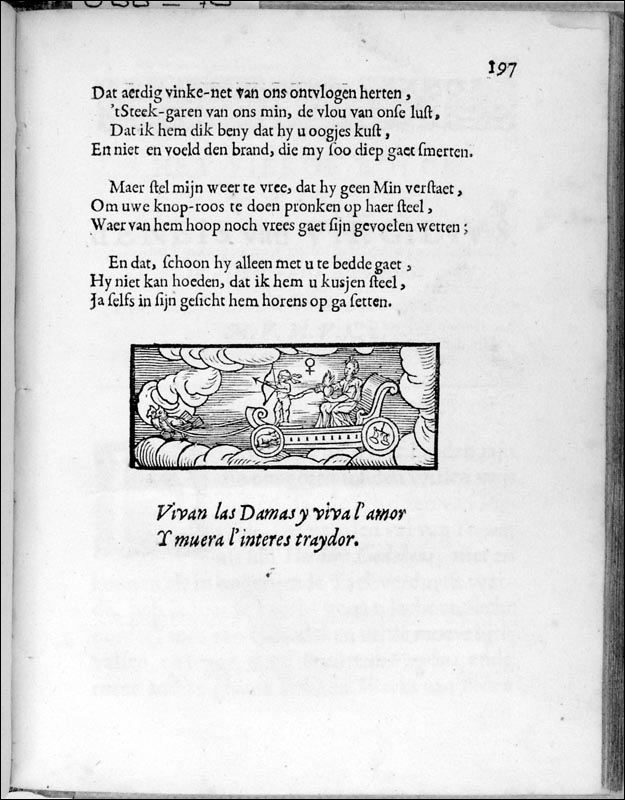 197
Dat aerdig vinke-net van ons ontvlogen herten,
'tSteek-garen van ons min, de vlou van onſe luſt,
Dat ik hem dik beny dat hy u oogjes kuſt,
En niet en voeld den brand, die my ſoo diep gaet ſmerten.
Maer ſtel mijn weer te vree, dat hy geen Min verſtaet,
Om uwe knop-roos te doen pronken op haer ſteel,
Waer van hem hoop noch vrees gaet ſijn gevoelen wetten;
En dat, ſchoon hy alleen met u te bedde gaet,
Hy niet kan hoeden, dat ik hem u kusjen ſteel,
Ja ſelfs in ſijn geſicht hem horens op ga ſetten.
♀
Vivan las Damas y viva l'amor
Y muera l'interes traydor.